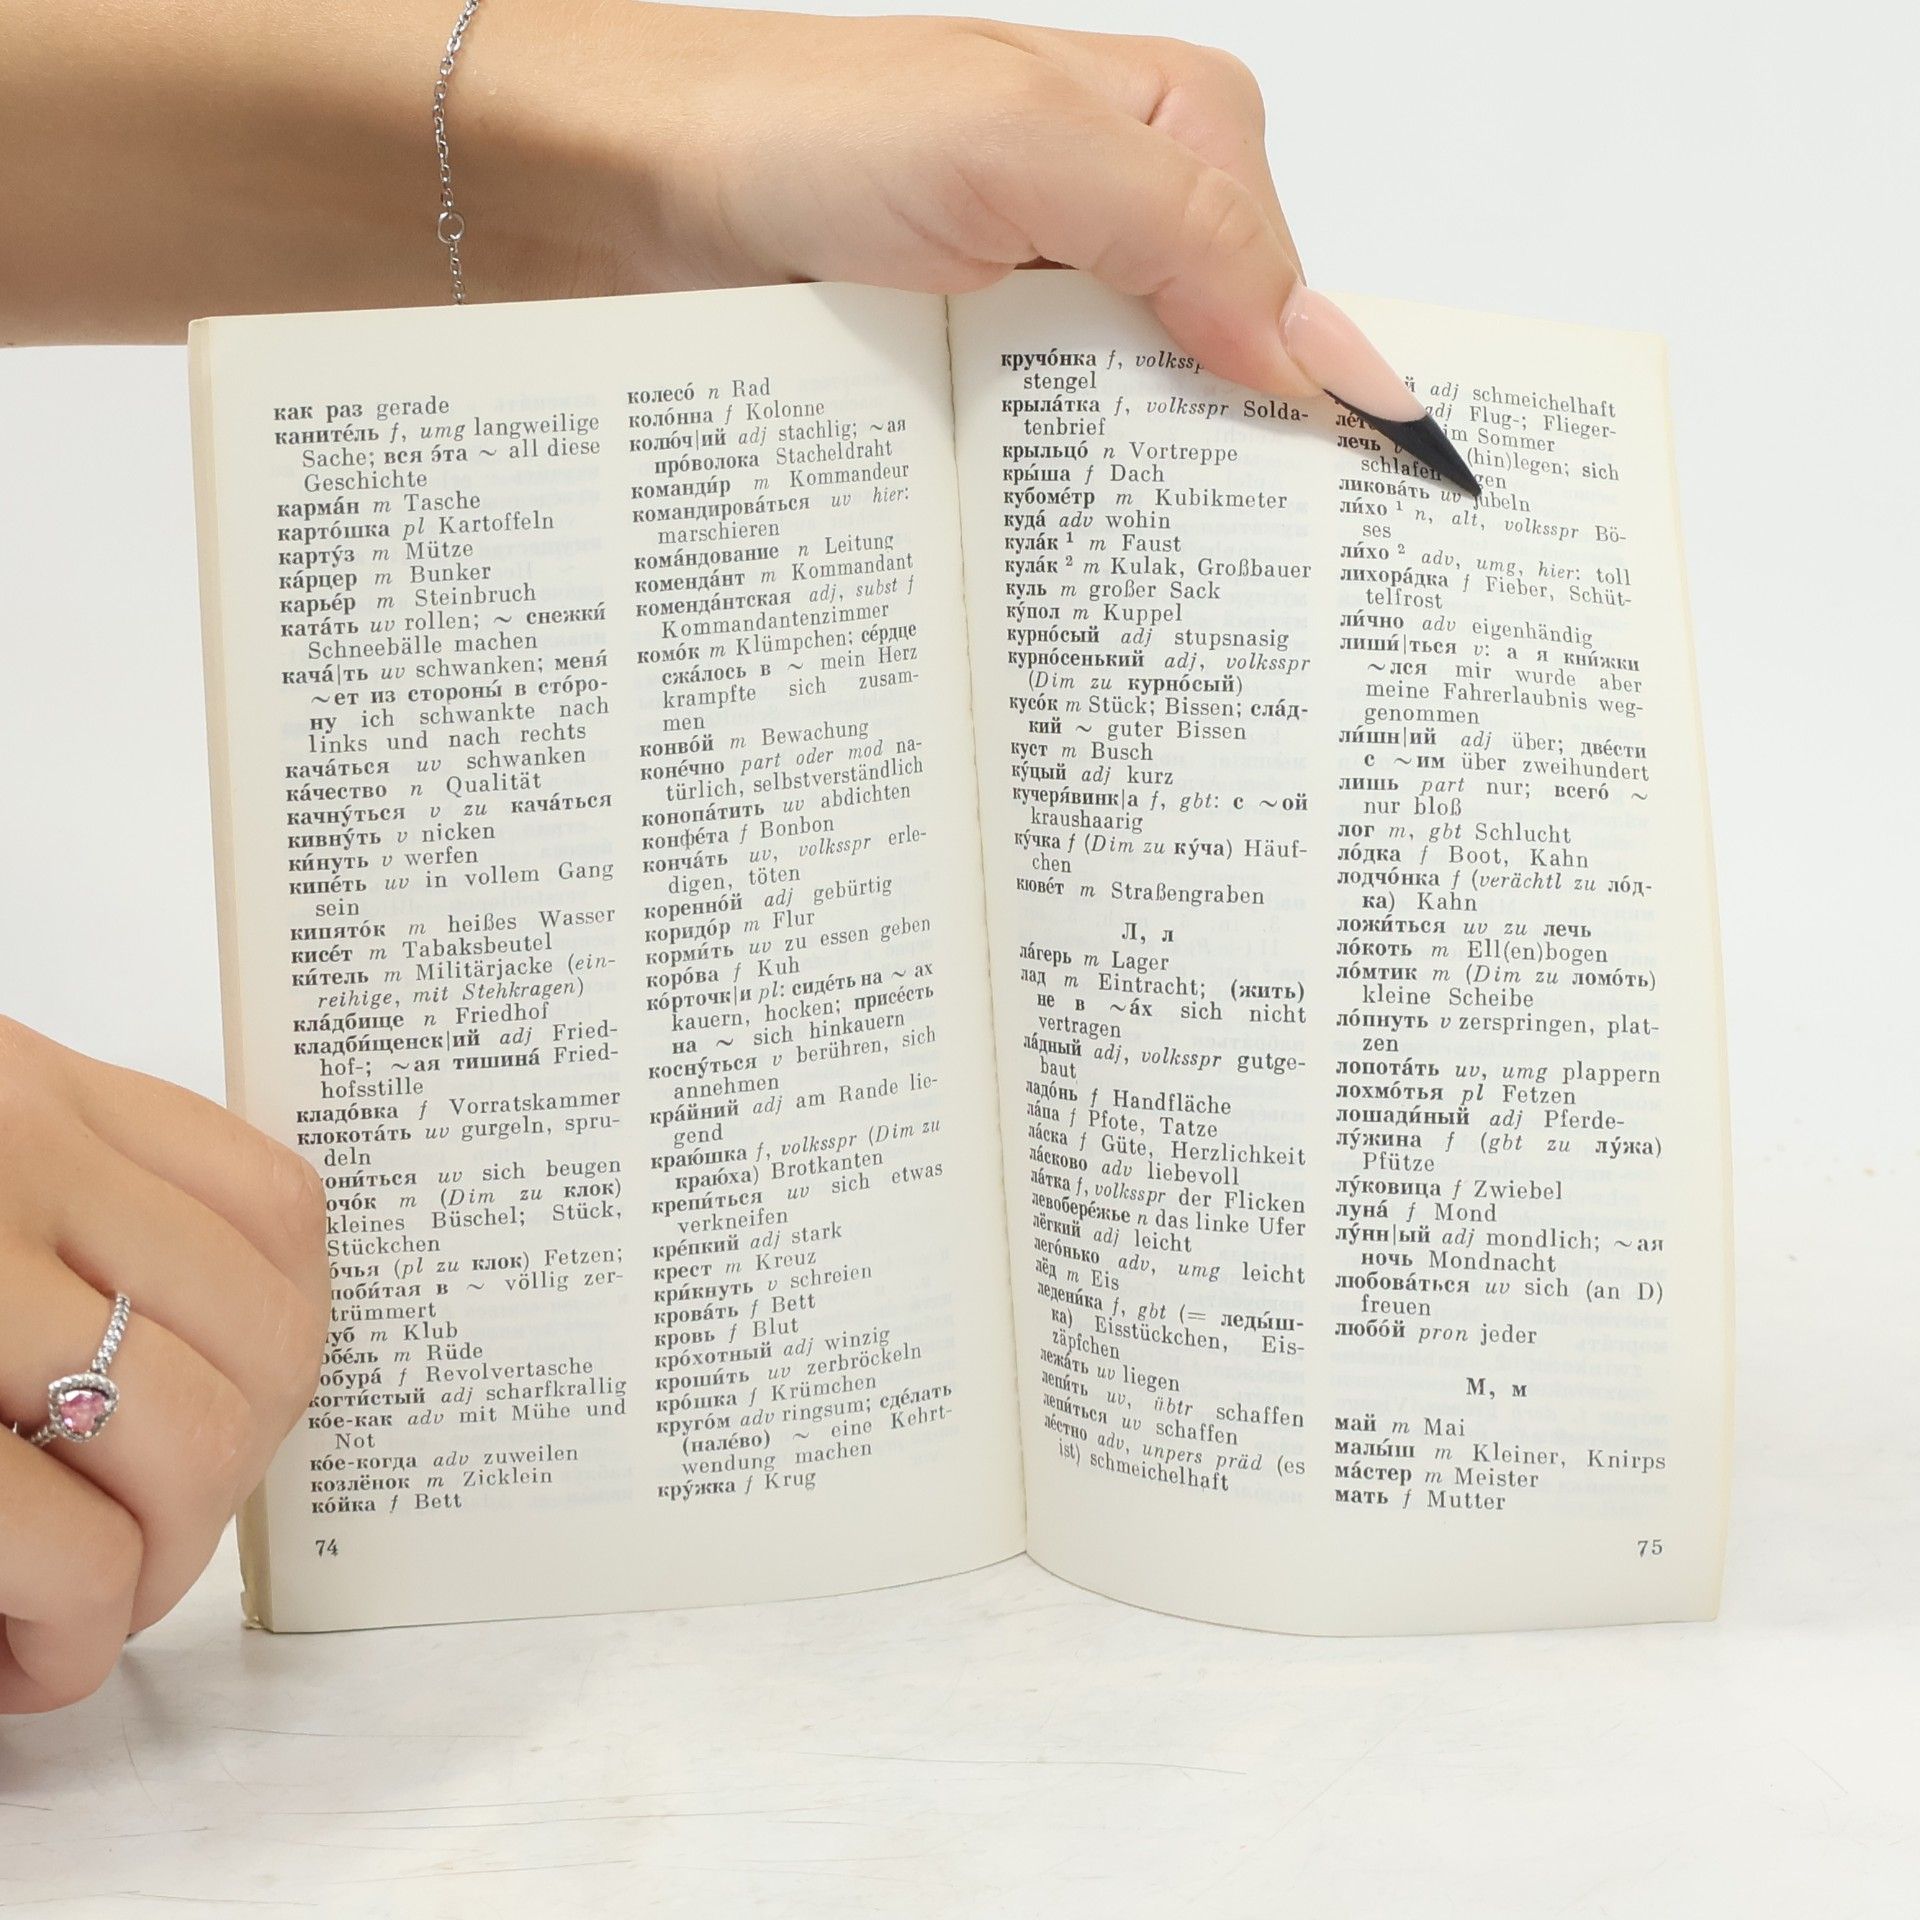 как раз gerade
каните́ль f, umg langweilige
Sache; вся э́та ~ all diese
Geschichte
карма́н m Tasche
карто́шка pl Kartoffeln
карту́з m Mütze
ка́рцер m Bunker
карье́р m Steinbruch
ката́ть uv rollen; ~ снежки́
Schneebälle machen
кача́|ть uv schwanken; меня́
~ет из стороны́ в сто́ро-
ну ich schwankte nach
links und nach rechts
кача́ться uv schwanken
ка́чество n Qualität
качну́ться v zu кача́ться
кивну́ть v nicken
ки́нуть v werfen
кипе́ть uv in vollem Gang
sein
кипято́к m heißes Wasser
кисе́т m Tabaksbeutel
ки́тель m Militärjacke (ein-
reihige, mit Stehkragen)
кла́дбище n Friedhof
кладби́щенск|ий adj Fried-
hof-; ~ая тишина́ Fried-
hofsstille
кладо́вка f Vorratskammer
клокота́ть uv gurgeln, spru-
deln
они́ться uv sich beugen
очо́к m (Dim zu клок)
kleines Büschel; Stück,
Stückchen
о́чья (pl zu клок) Fetzen;
оби́тая в ~ völlig zer-
trümmert
уб m Klub
обе́ль m Rüde
обура́ f Revolvertasche
когти́стый adj scharfkrallig
ко́е-как adv mit Mühe und
Not
ко́е-когда adv zuweilen
козлёнок m Zicklein
ко́йка f Bett
74
колесо́ n Rad
коло́нна f Kolonne
колю́ч|ий adj stachlig; ~ая
про́волока Stacheldraht
команди́р m Kommandeur
командирова́ться uv hier:
marschieren
кома́ндование n Leitung
коменда́нт m Kommandant
коменда́нтская adj, subst f
Kommandantenzimmer
комо́к m Klümpchen; се́рдце
сжа́лось в ~ mein Herz
krampfte sich zusam-
men
конво́й m Bewachung
коне́чно part oder mod na-
türlich, selbstverständlich
конопа́тить uv abdichten
конфе́та f Bonbon
конча́ть uv, volksspr erle-
digen, töten
коренно́й adj gebürtig
коридо́р m Flur
корми́ть uv zu essen geben
коро́ва f Kuh
ко́рточк|и pl: сиде́ть на ~ ах
kauern, hocken; присе́сть
на ~ sich hinkauern
косну́ться v berühren, sich
annehmen
кра́йний adj am Rande lie-
gend
краю́шка f, volksspr (Dim zu
краю́ха) Brotkanten
крепи́ться uv sich etwas
verkneifen
кре́пкий adj stark
крест m Kreuz
кри́кнуть v schreien
крова́ть f Bett
кровь f Blut
кро́хотный adj winzig
кроши́ть uv zerbröckeln
кро́шка f Krümchen
круго́м adv ringsum; сде́лать
(нале́во) ~ eine Kehrt-
wendung machen
кру́жка f Krug
кручо́нка f,
stengel
крыла́тка f, volksspr Solda-
tenbrief
крыльцо́ n Vortreppe
кры́ша f Dach
кубоме́тр m Kubikmeter
куда́ adv wohin
кула́к ¹ m Faust
кула́к ² m Kulak, Großbauer
куль m großer Sack
ку́пол m Kuppel
курно́сый adj stupsnasig
курно́сенький adj, volksspr
(Dim zu курно́сый)
кусо́к m Stück; Bissen; сла́д-
кий ~ guter Bissen
куст m Busch
ку́цый adj kurz
кучеря́винк|а f, gbt: с ~ой
kraushaarig
ку́чка f (Dim zu ку́ча) Häuf-
chen
кюве́т m Straßengraben
Л, л
ла́герь m Lager
лад m Eintracht; (жить)
не в ~а́х sich nicht
vertragen
ла́дный adj, volksspr gutge-
baut
ладо́нь f Handfläche
ла́па f Pfote, Tatze
ла́ска f Güte, Herzlichkeit
ла́сково adv liebevoll
ла́тка f, volksspr der Flicken
левобере́жье n das linke Ufer
лёгкий adj leicht
лего́нько adv, umg leicht
лёд m Eis
ледени́ка f, gbt (= леды́ш-
ка) Eisstückchen, Eis-
zäpfchen
лежа́ть uv liegen
лепи́ть uv, übtr schaffen
лепи́ться uv schaffen
ле́стно adv, unpers präd (es
ist) schmeichelhaft
й adj schmeichelhaft
adj Flug-; Flieger-
im Sommer
лечь (hin)legen; sich
schlafen
ликова́ть uv jubeln
ли́хо ¹ n, alt, volksspr Bö-
ses
ли́хо ² adv, umg, hier: toll
лихора́дка f Fieber, Schüt-
telfrost
ли́чно adv eigenhändig
лиши́|ться v: а я кни́жки
~лся mir wurde aber
meine Fahrerlaubnis weg-
genommen
ли́шн|ий adj über; две́сти
с ~им über zweihundert
лишь part nur; всего́ ~
nur bloß
лог m, gbt Schlucht
ло́дка f Boot, Kahn
лодчо́нка f (verächtl zu ло́д-
ка) Kahn
ложи́ться uv zu лечь
ло́коть m Ell(en)bogen
ло́мтик m (Dim zu ломо́ть)
kleine Scheibe
ло́пнуть v zerspringen, plat-
zen
лопота́ть uv, umg plappern
лохмо́тья pl Fetzen
лошади́ный adj Pferde-
лу́жина f (gbt zu лу́жа)
Pfütze
лу́ковица f Zwiebel
луна́ f Mond
лу́нн|ый adj mondlich; ~ая
ночь Mondnacht
любова́ться uv sich (an D)
freuen
любо́й pron jeder
М, м
май m Mai
малы́ш m Kleiner, Knirps
ма́стер m Meister
мать f Mutter
75